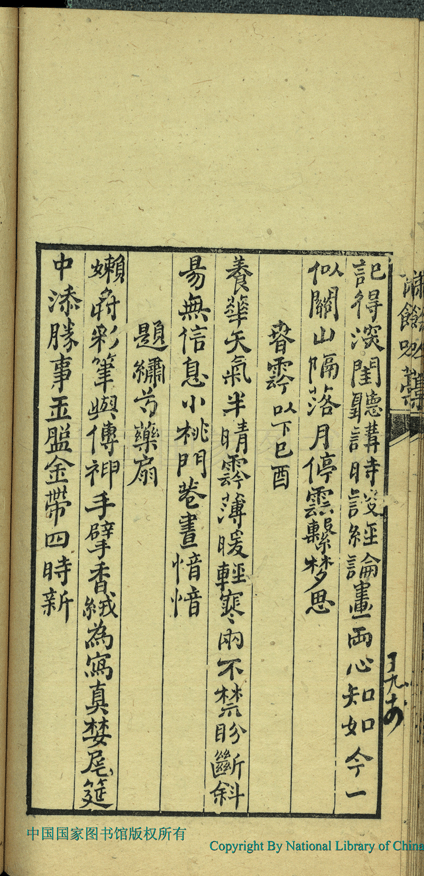 記得深閨聽講時談經論畫兩心知如今一
似關山隔落月停雲繫夢思
春霒 以下己酉
養華天氣半晴霒薄暖輕寒兩不禁盼斷斜
昜無信息小桃門巷晝愔愔
題繡芍藥扇
嬾將彩筆與傳神手擘香絨為寫真婪尾筵
中添勝事玉盤金帶四時新
中国国家图书馆版权所有
Copyright By National Library of China